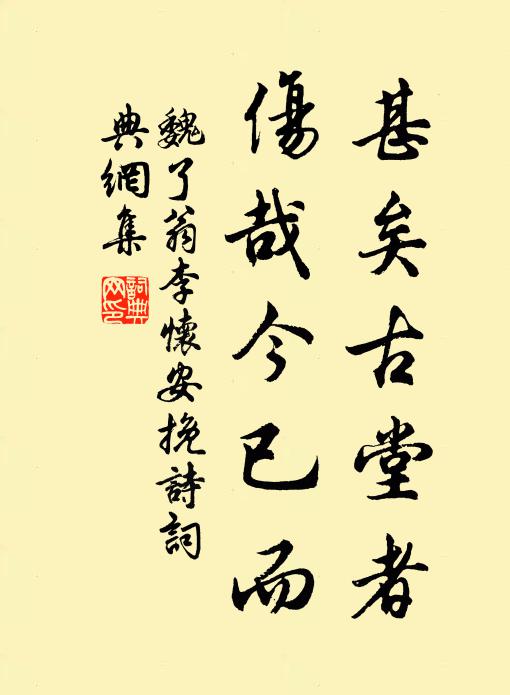 甚矣古堂者
傷哉今已而
魏了翁李懷安挽詩詞
典網集
詞典
网印